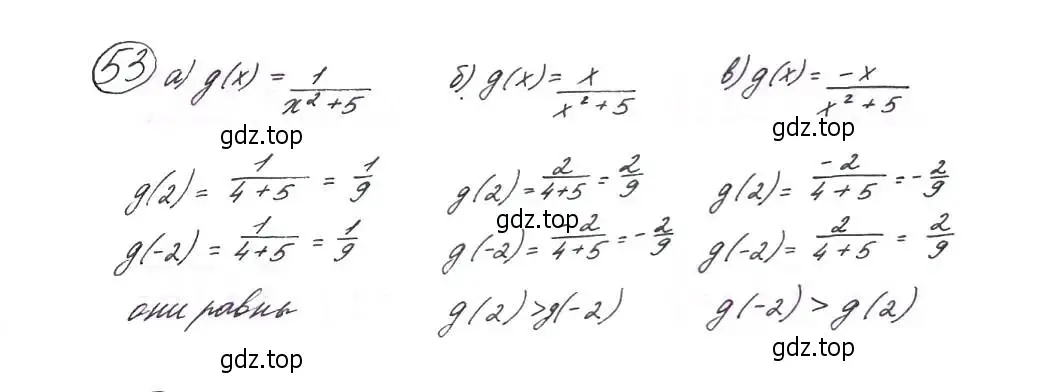 53 а) g(x) = 1/(x² + 5) б) g(x) = x/(x² + 5) в) g(x) = -x/(x² + 5)
gdz.top gdz.top gdz.top
g(2) = 1/(4 + 5) = 1/9 g(2) = 2/(4+5) = 2/9 g(2) = -2/(4 + 5) = -2/9
gdz.top
g(-2) = 1/(4+5) = 1/9 g(-2) = -2/(4+5) = -2/9 g(-2) = 2/(4+5) = 2/9
они равны g(2) > g(-2) g(-2) > g(2)
gdz.top gdz.top gdz.top